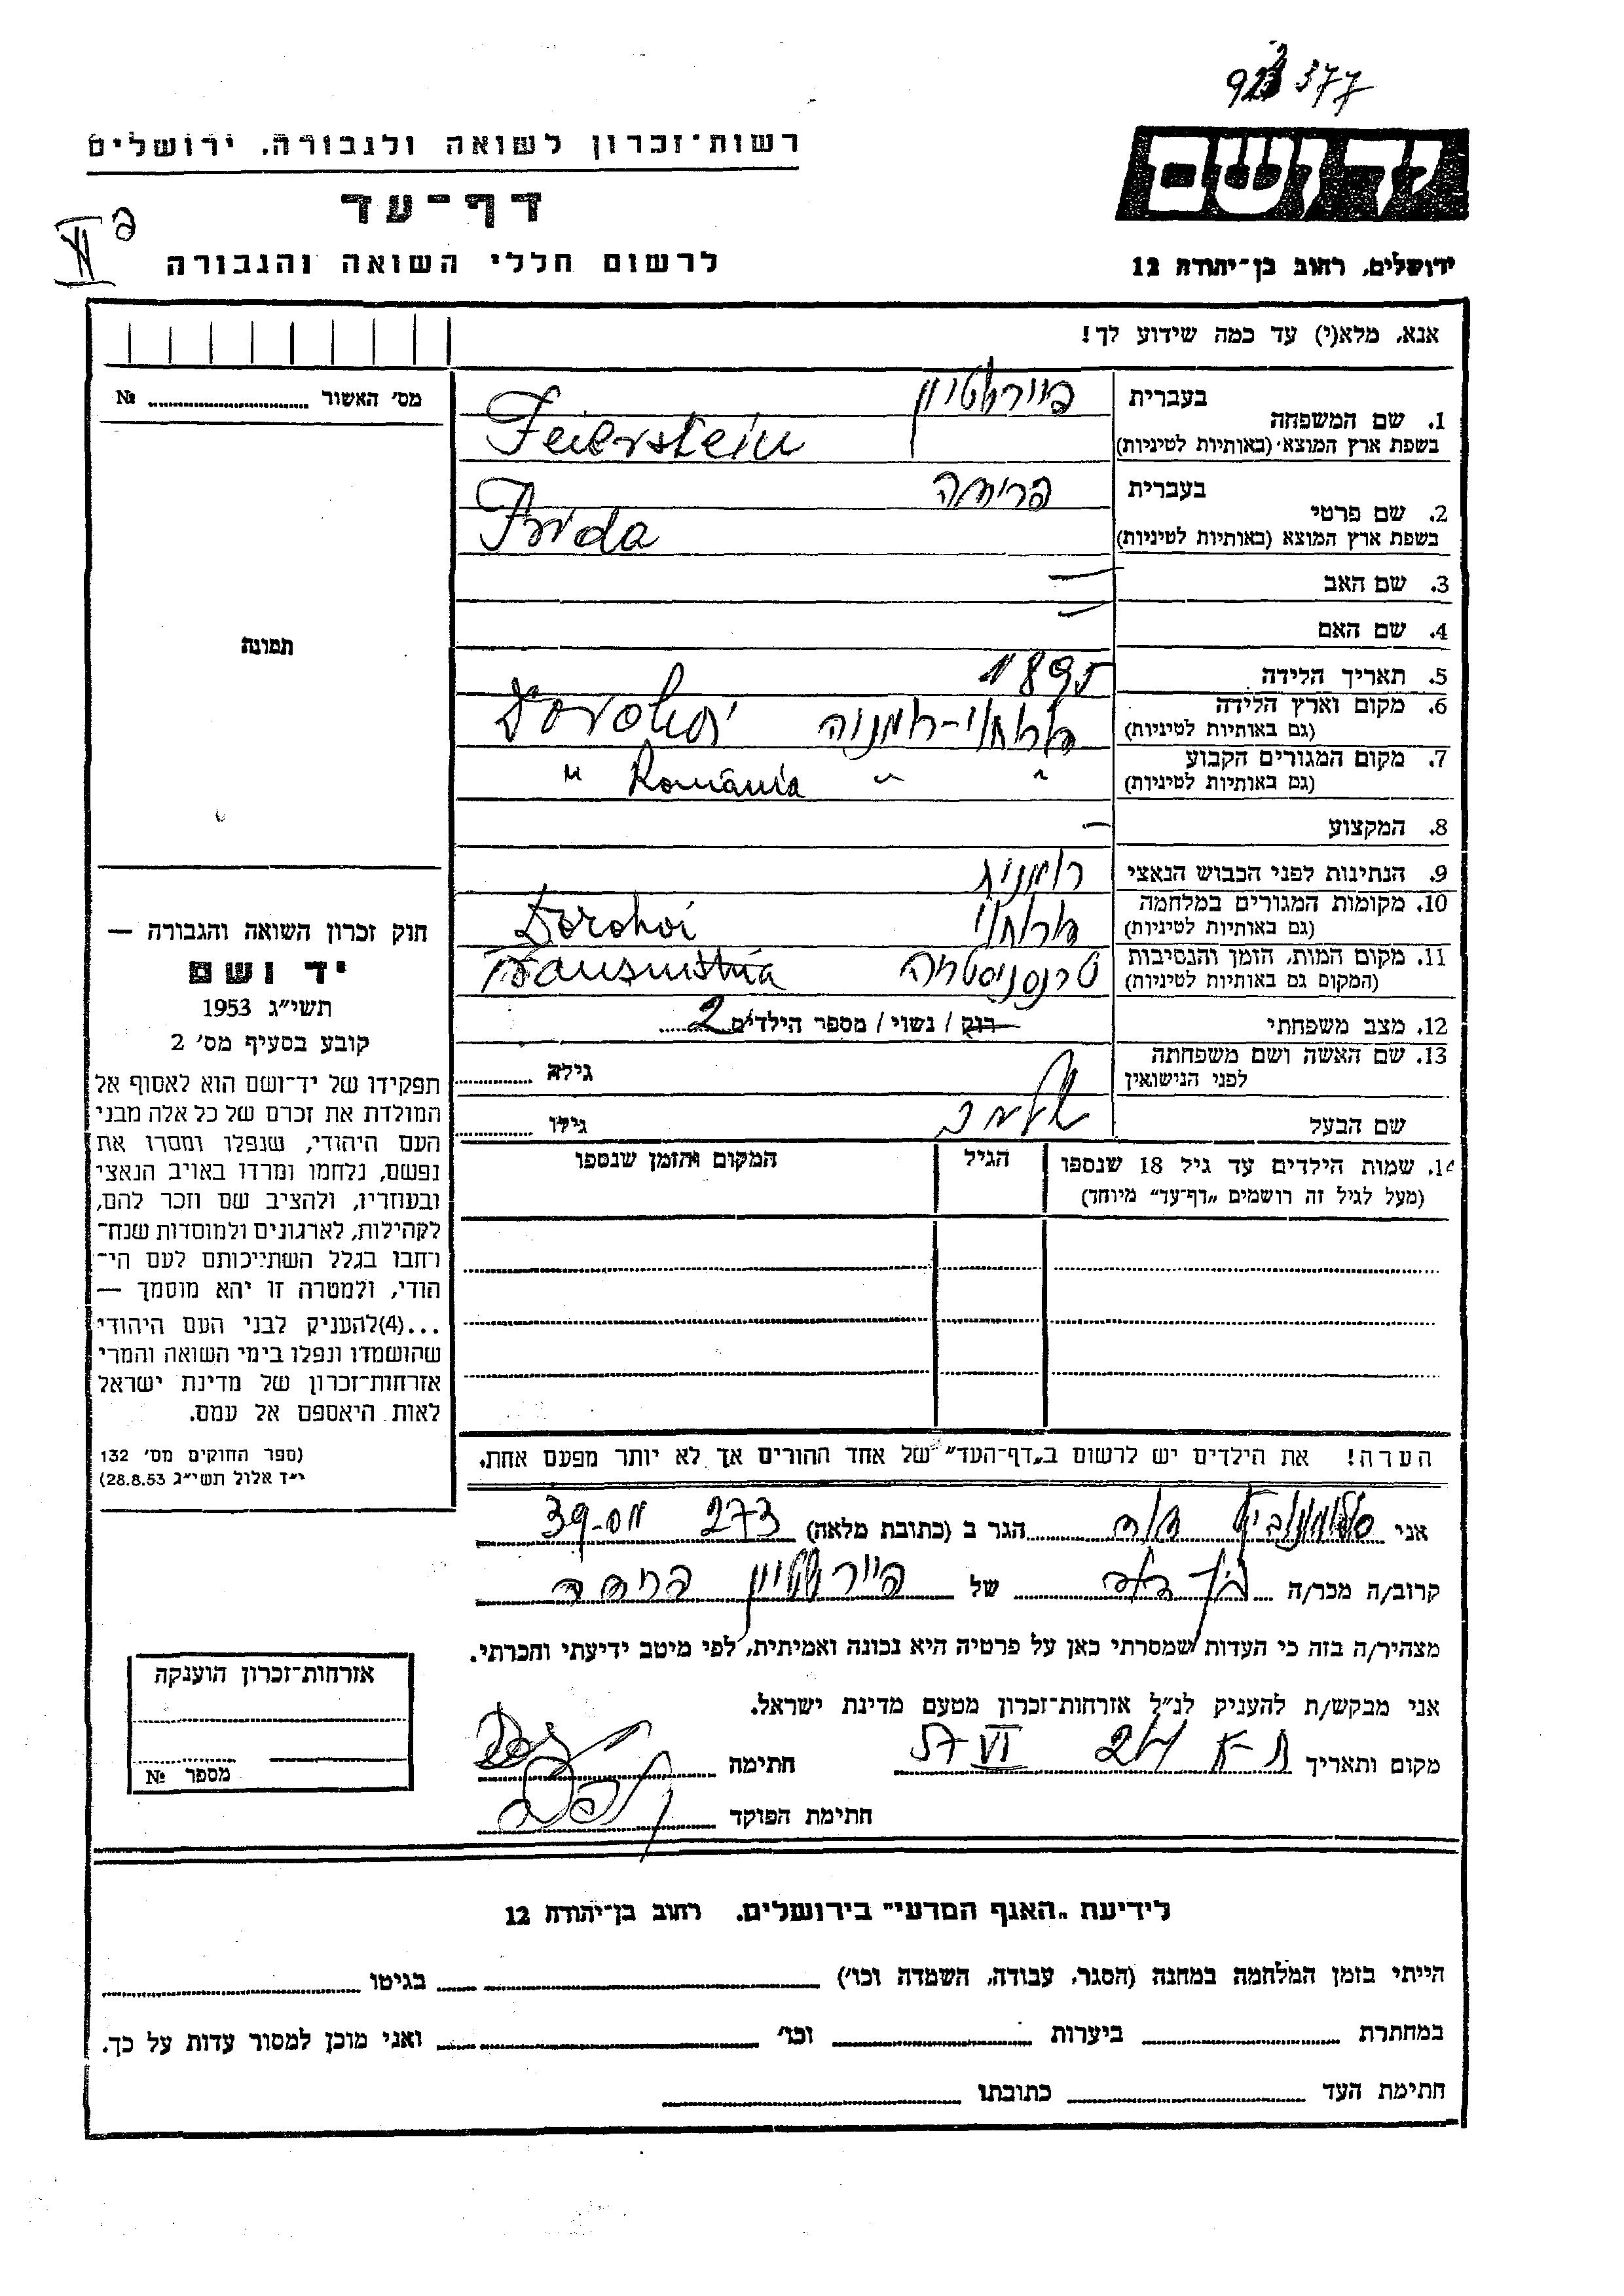 923377
רשות-זכרון לשואה ולגבורה, ירושלים
יד ושם
דף-עד
לרשום חללי השואה והגבורה
ירושלים, רחוב בן-יהודה 12
אנא, מלא(י) עד כמה שידוע לך!
מס' האשור № ........
בעברית
1. שם המשפחה
בשפת ארץ המוצא (באותיות לטיניות)
פיירשטיין
Feierstein
בעברית
2. שם פרטי
בשפת ארץ המוצא (באותיות לטיניות)
פרידה
Frida
3. שם האב —
4. שם האם —
תמונה
5. תאריך הלידה 1895
6. מקום וארץ הלידה
(גם באותיות לטיניות)
דורוחוי-רומניה Dorohoi
7. מקום המגורים הקבוע
(גם באותיות לטיניות)
" " România "
8. המקצוע —
9. הנתינות לפני הכבוש הנאצי רומנית
10. מקומות המגורים במלחמה
(גם באותיות לטיניות)
דורוחוי Dorohoi
11. מקום המות, הזמן והנסיבות
(המקום גם באותיות לטיניות)
טרנסניסטריה Transnistria
12. מצב משפחתי רוק / נשוי / מספר הילדים 2
13. שם האשה ושם משפחתה
לפני הנישואין
גילה ........
שם הבעל
גילו ........
14. שמות הילדים עד גיל 18 שנספו
(מעל לגיל זה רושמים "דף-עד" מיוחד)
הגיל
המקום והזמן שנספו
הערה! את הילדים יש לרשום ב"דף-העד" של אחד ההורים אך לא יותר מפעם אחת.
חוק זכרון השואה והגבורה —
יד ושם
תשי"ג 1953
קובע בסעיף מס' 2
תפקידו של יד-ושם הוא לאסוף אל
המולדת את זכרם של כל אלה מבני
העם היהודי, שנפלו ומסרו את
נפשם, נלחמו ומרדו באויב הנאצי
ובעוזריו, ולהציב שם וזכר להם,
לקהילות, לארגונים ולמוסדות שנח-
רחבו בגלל השתייכותם לעם הי-
הודי, ולמטרה זו יהא מוסמך —
...(4)להעניק לבני העם היהודי
שהושמדו ונפלו בימי השואה והמרי
אזרחות-זכרון של מדינת ישראל
לאות היאספם אל עמם.
(ספר החוקים מס' 132
י"ד אלול תשי"ג 28.8.53)
אני סלומוביץ הגר ב (כתובת מלאה) 273 39
קרוב/ה מכר/ה של פיירשטיין פרידה
מצהיר/ה בזה כי העדות שמסרתי כאן על פרטיה היא נכונה ואמיתית, לפי מיטב ידיעתי והכרתי.
אני מבקש/ת להעניק לנ"ל אזרחות-זכרון מטעם מדינת ישראל.
מקום ותאריך ת-א 24 VI 57 חתימה
חתימת הפוקד
אזרחות-זכרון הוענקה
מספר №
לידיעת "האגף המדעי" בירושלים, רחוב בן-יהודה 12
הייתי בזמן המלחמה במחנה (הסגר, עבודה, השמדה וכו') ........ בגיטו ........
במחתרת ........ ביערות ........ וכו' ........ ואני מוכן למסור עדות על כך.
חתימת העד ........ כתובתו ........